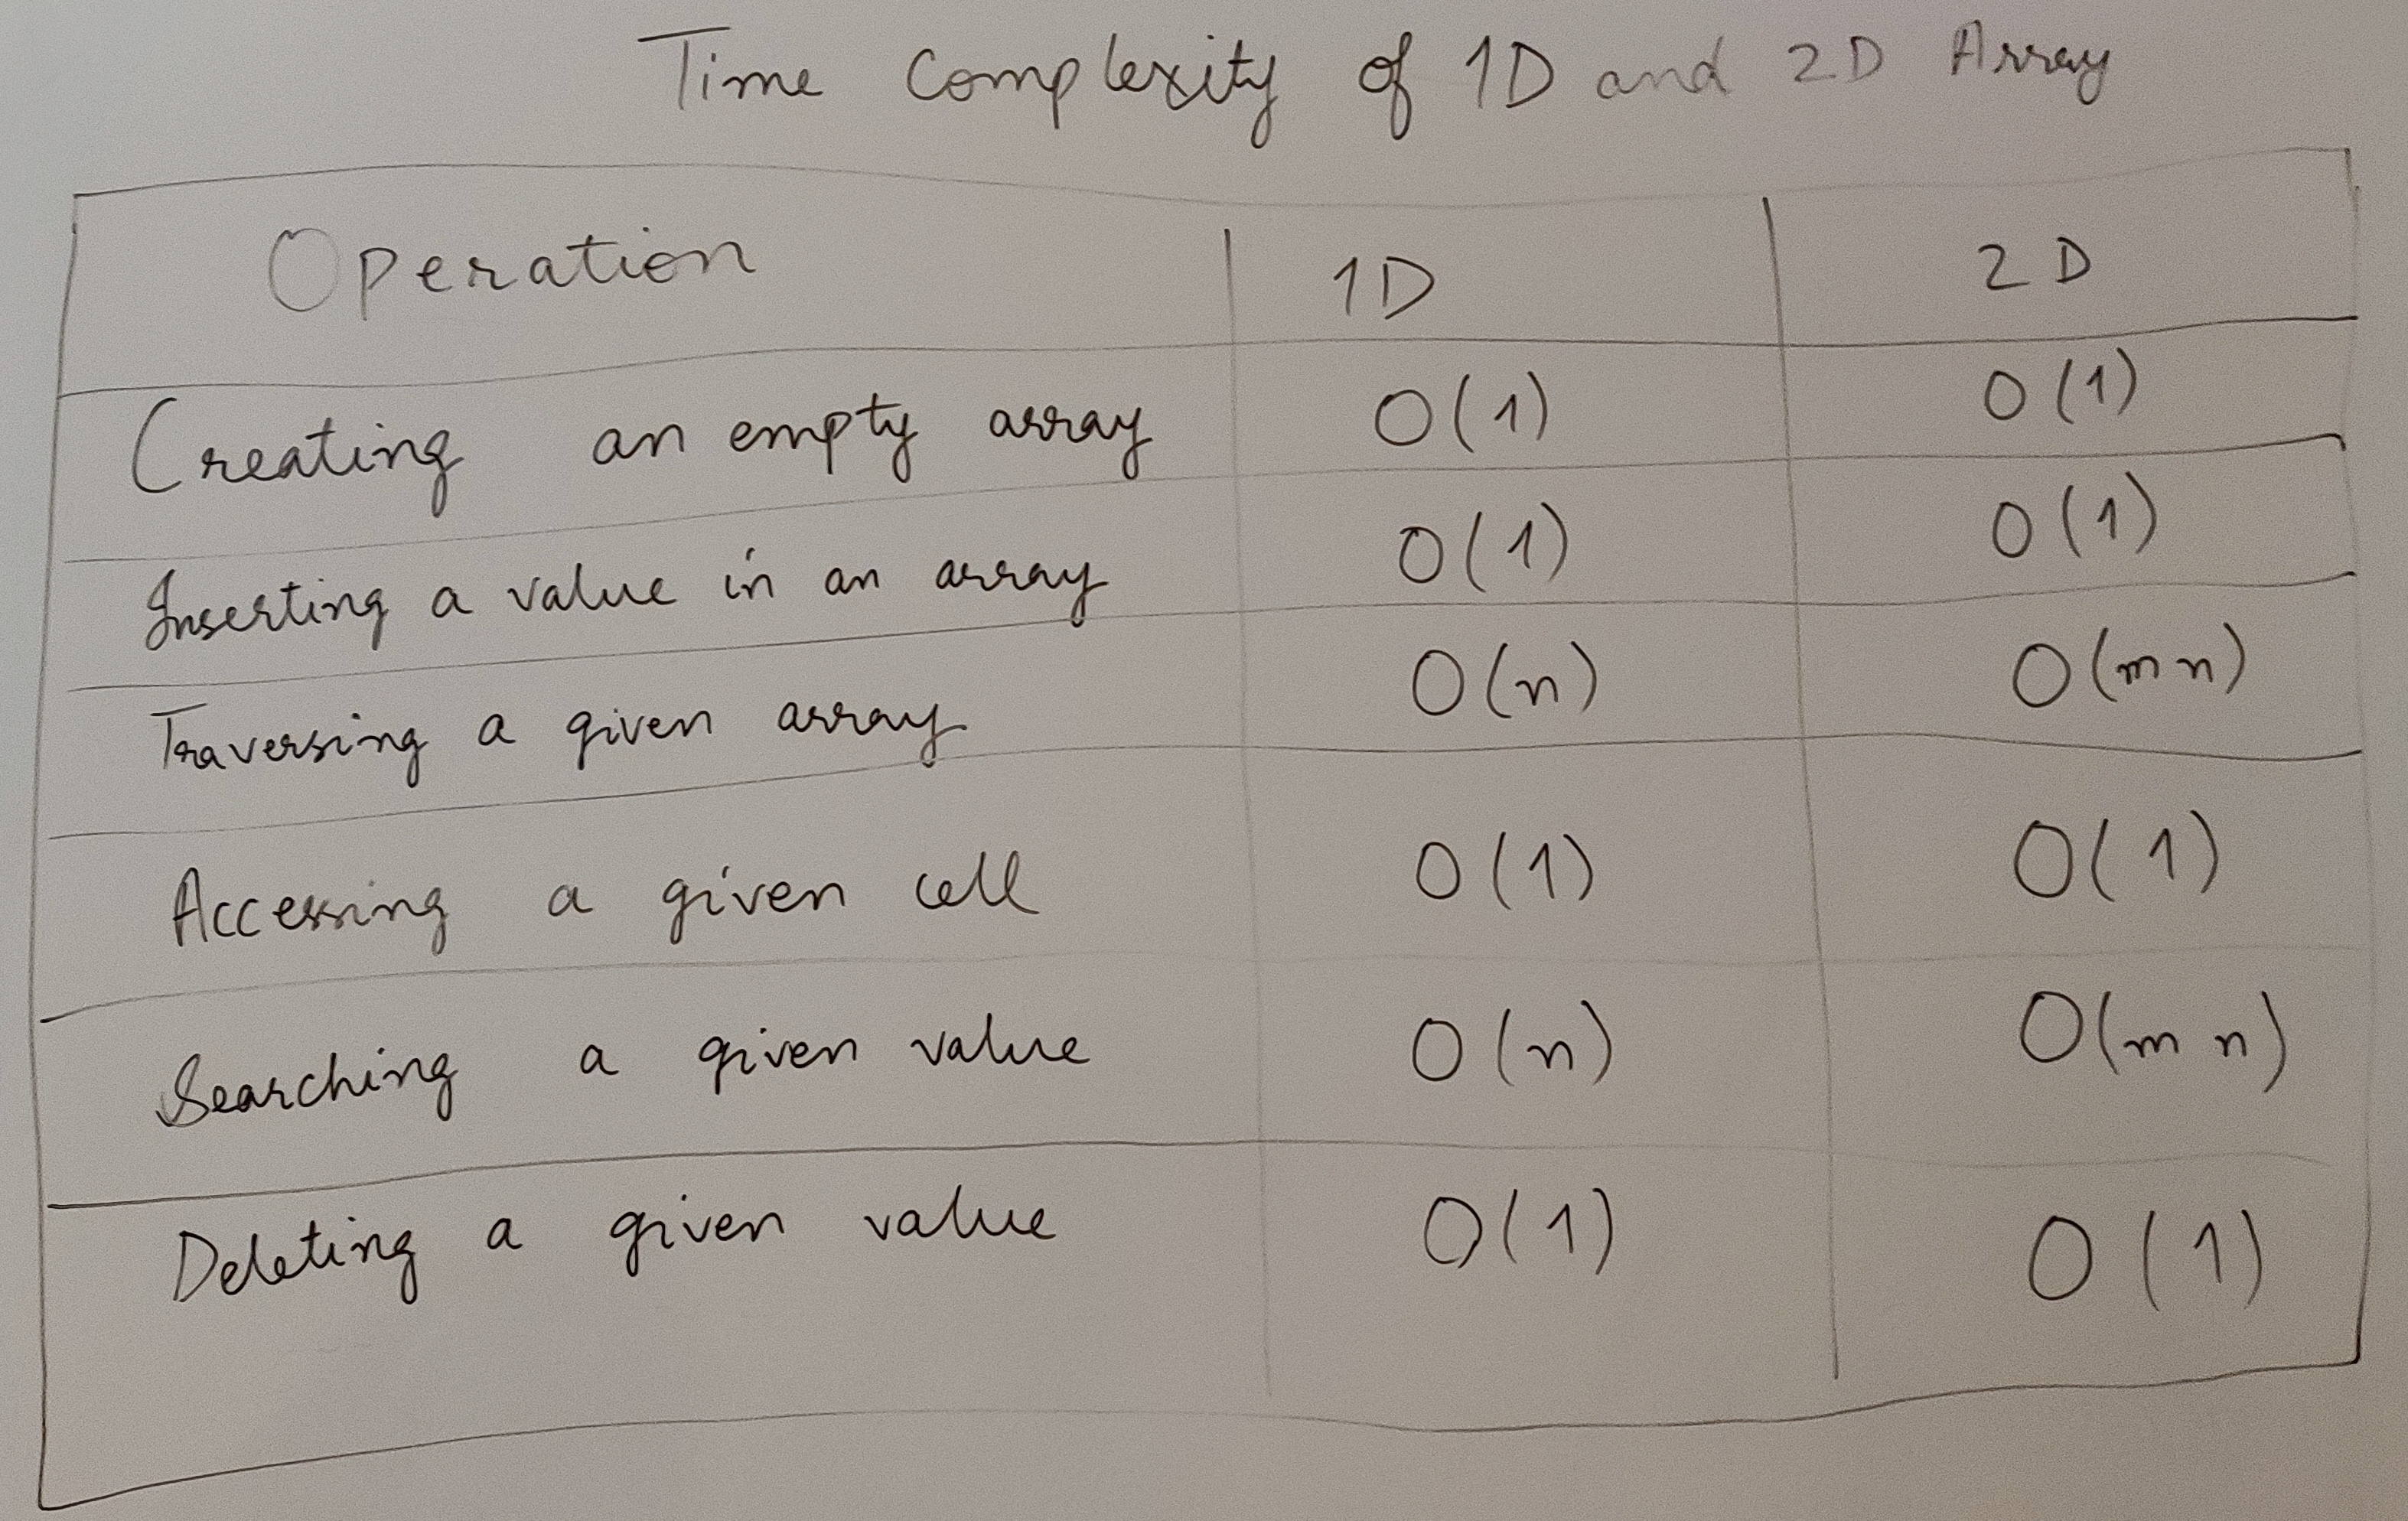 Time Complexity of 1D and 2D Array
Operation 1D 2D
Creating an empty array O(1) O(1)
Inserting a value in an array O(1) O(1)
Traversing a given array O(n) O(mn)
Accessing a given cell O(1) O(1)
Searching a given value O(n) O(mn)
Deleting a given value O(1) O(1)